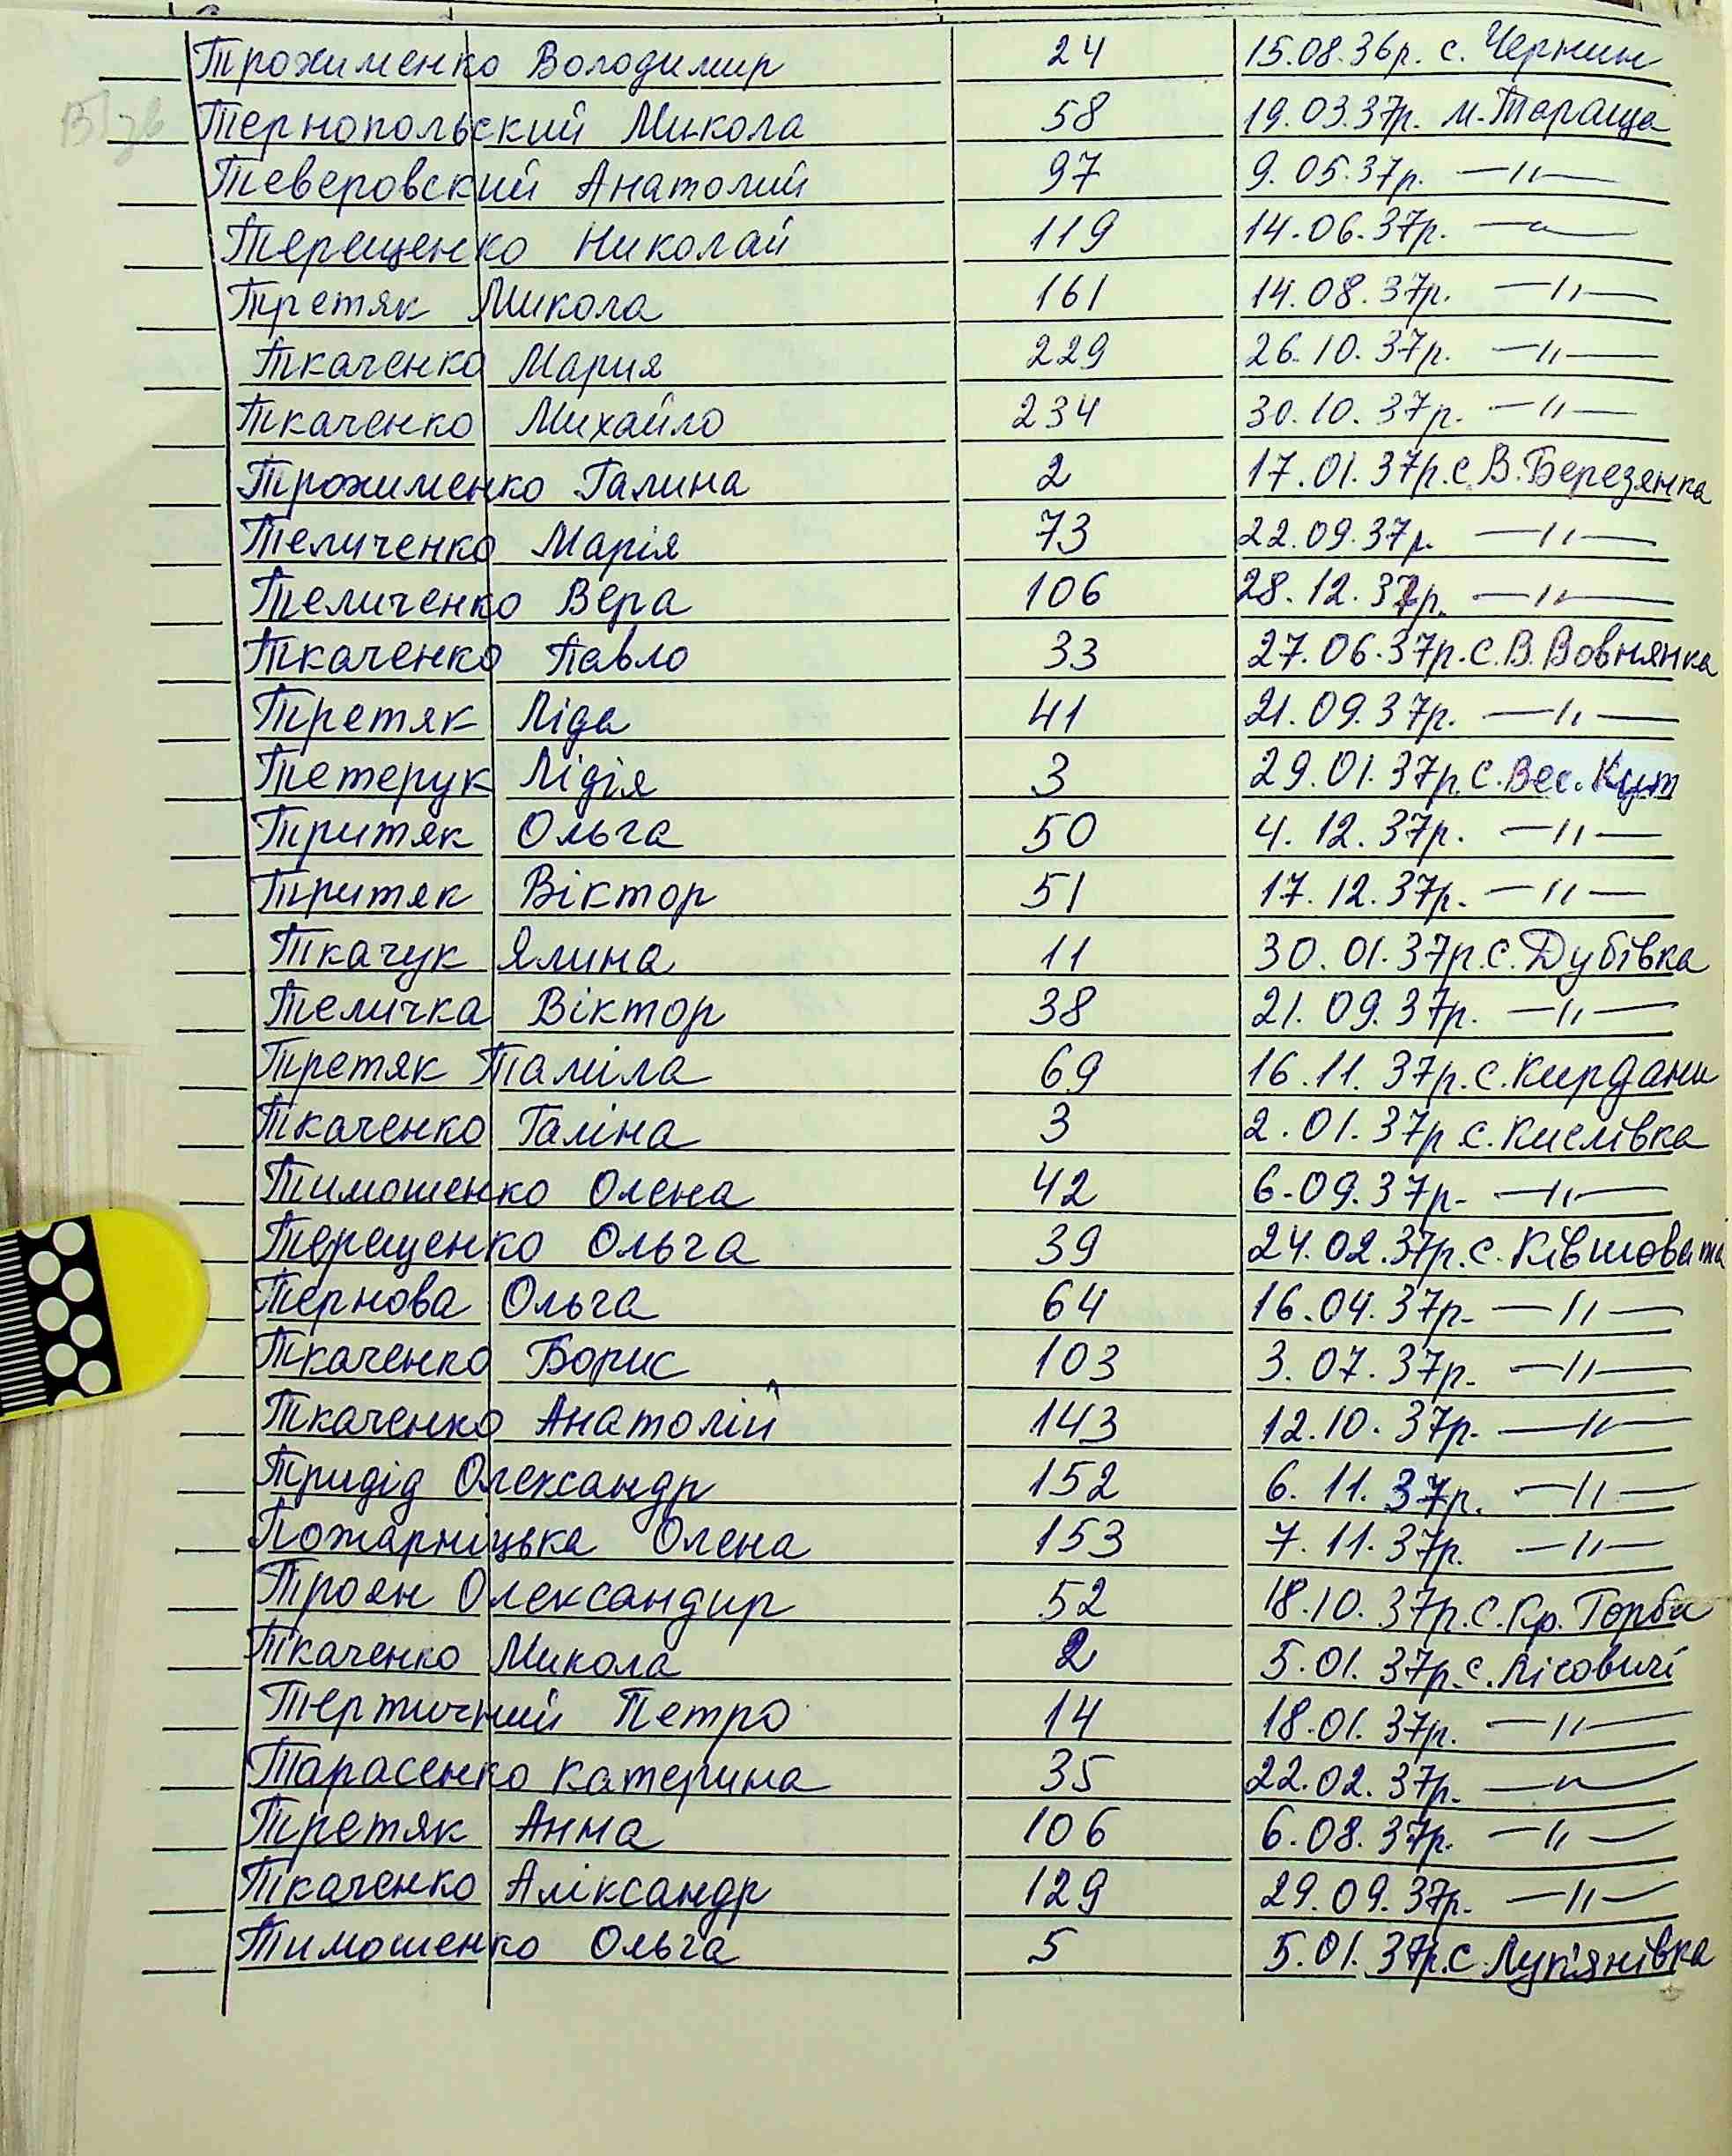 Трохименко Володимир 24 15.08.36р. с. Чернин
Тернопольский Микола 58 19.03.37р. м. Тараща
Теверовский Анатолий 97 9.05.37р. —"—
Терещенко Николай 119 14.06.37р. —"—
Третяк Микола 161 14.08.37р. —"—
Ткаченко Мария 229 26.10.37р. —"—
Ткаченко Михайло 234 30.10.37р. —"—
Трохименко Галина 2 17.01.37р. с. В. Березянка
Теличенко Марія 73 22.09.37р. —"—
Теличенко Вера 106 28.12.37р. —"—
Ткаченко Павло 33 27.06.37р. с. В. Вовнянка
Третяк Ліда 41 21.09.37р. —"—
Тетерук Лідія 3 29.01.37р. с. Вес. Кут
Тритяк Ольга 50 4.12.37р. —"—
Тритяк Віктор 51 17.12.37р. —"—
Ткачук Ялина 11 30.01.37р. с. Дубівка
Теличка Віктор 38 21.09.37р. —"—
Третяк Таміла 69 16.11.37р. с. Кирдани
Ткаченко Галіна 3 2.01.37р с. Кислівка
Тимошенко Олена 42 6.09.37р. —"—
Терещенко Ольга 39 24.02.37р. с. Ківшовата
Тернова Ольга 64 16.04.37р. —"—
Ткаченко Борис 103 3.07.37р. —"—
Ткаченко Анатолій 143 12.10.37р. —"—
Тридід Олександр 152 6.11.37р. —"—
Пожарніцька Олена 153 7.11.37р. —"—
Троян Олександир 52 18.10.37р. с. Кр. Горби
Ткаченко Микола 2 5.01.37р. с. Лісовичі
Тертичний Петро 14 18.01.37р. —"—
Тарасенко Катерина 35 22.02.37р. —"—
Третяк Анна 106 6.08.37р. —"—
Ткаченко Аліксандр 129 29.09.37р. —"—
Тимошенко Ольга 5 5.01.37р. с. Лук'янівка